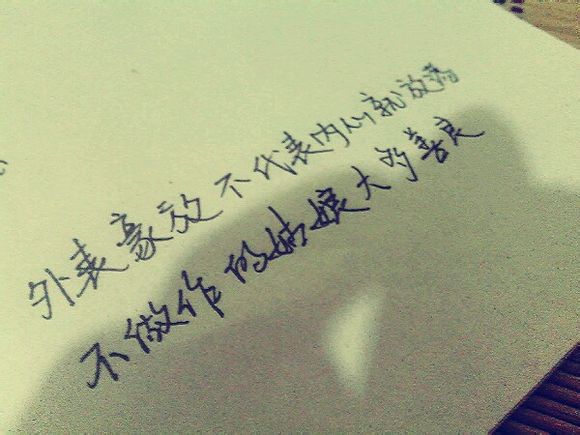 外表豪放不代表内心就放荡
不做作的姑娘大多善良